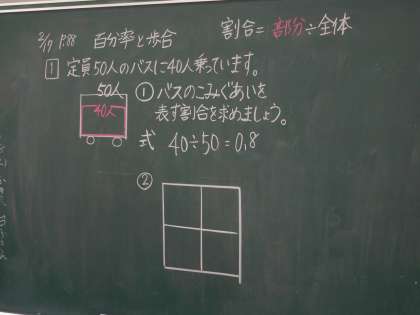 2/17 P.88 百分率と歩合 割合=部分÷全体
1 定員50人のバスに40人乗っています。
50人
40人
① バスのこみぐあいを
表す割合を求めましょう。
式 40÷50=0.8
②